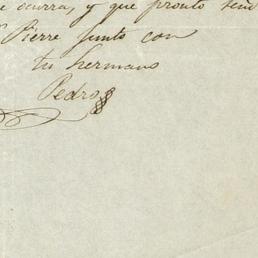 ocurra, y que pronto
Pierre junto con
tu hermano
Pedro